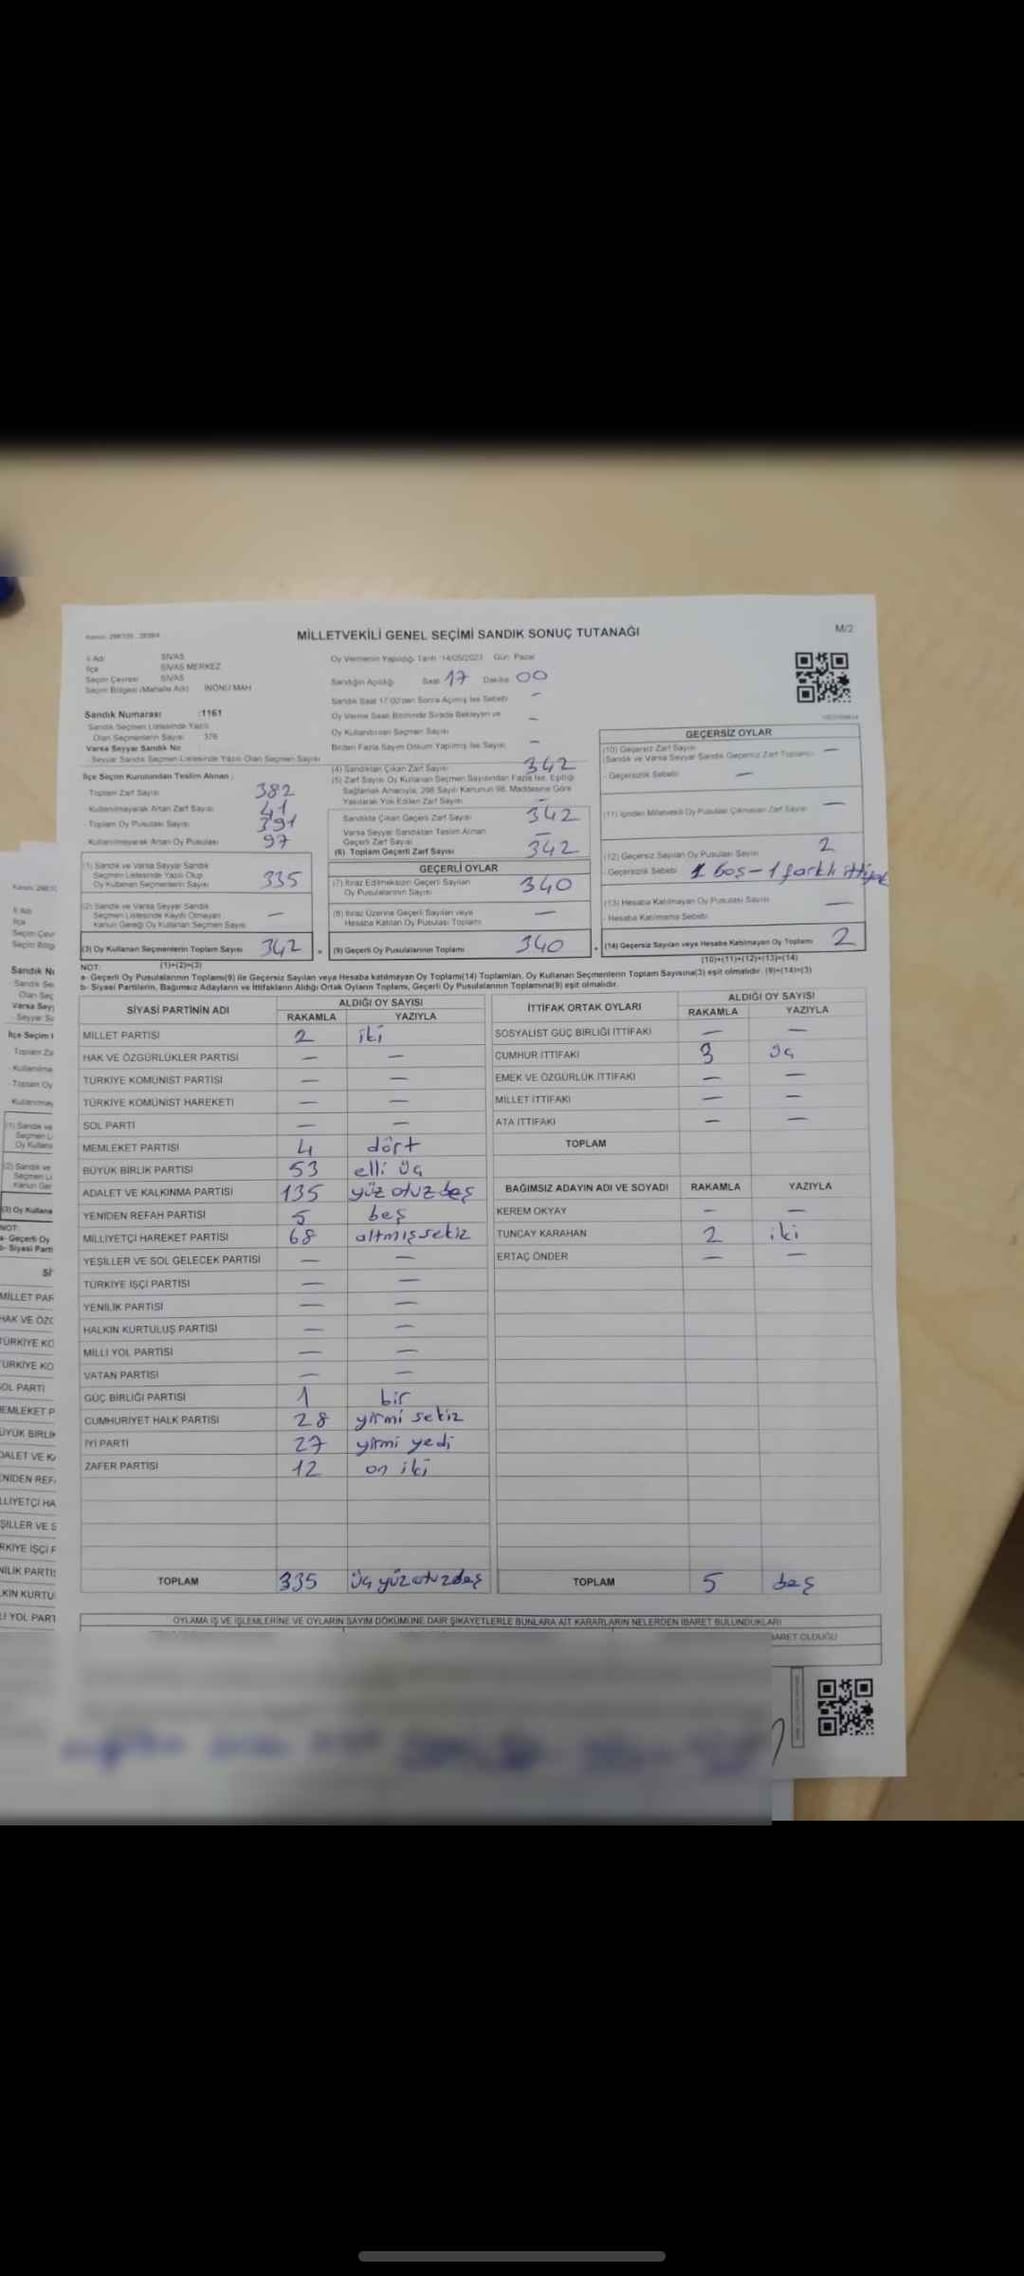 Kanun: 298/105 , 2839/4
MİLLETVEKİLİ GENEL SEÇİMİ SANDIK SONUÇ TUTANAĞI
M/2
İl Adı SİVAS
İlçe SİVAS MERKEZ
Seçim Çevresi SİVAS
Seçim Bölgesi (Mahalle Adı) İNÖNÜ MAH
Sandık Numarası :1161
Sandık Seçmen Listesinde Yazılı
Olan Seçmenlerin Sayısı : 376
Varsa Seyyar Sandık No
Seyyar Sandık Seçmen Listesinde Yazılı Olan Seçmen Sayısı
Oy Vermenin Yapıldığı Tarih :14/05/2023 Gün: Pazar
Sandığın Açıldığı Saat 17 Dakika 00
Sandık Saat 17:00'den Sonra Açılmış İse Sebebi -
Oy Verme Saati Bitiminde Sırada Bekleyen ve
Oy Kullandırılan Seçmen Sayısı -
Birden Fazla Sayım Döküm Yapılmış İse Sayısı -
İlçe Seçim Kurulundan Teslim Alınan ;
Toplam Zarf Sayısı 382
Kullanılmayarak Artan Zarf Sayısı 41
Toplam Oy Pusulası Sayısı 391
Kullanılmayarak Artan Oy Pusulası 97
(1) Sandık ve Varsa Seyyar Sandık
Seçmen Listesinde Yazılı Olup
Oy Kullanan Seçmenlerin Sayısı 335
(2) Sandık ve Varsa Seyyar Sandık
Seçmen Listesinde Kaydı Olmayan
Kanun Gereği Oy Kullanan Seçmen Sayısı —
(3) Oy Kullanan Seçmenlerin Toplam Sayısı 342
(1)+(2)=(3)
(4) Sandıktan Çıkan Zarf Sayısı 342
(5) Zarf Sayısı Oy Kullanan Seçmen Sayısından Fazla İse, Eşitliği
Sağlamak Amacıyla, 298 Sayılı Kanunun 98. Maddesine Göre
Yakılarak Yok Edilen Zarf Sayısı —
Sandıkta Çıkan Geçerli Zarf Sayısı 342
Varsa Seyyar Sandıktan Teslim Alınan
Geçerli Zarf Sayısı —
(6) Toplam Geçerli Zarf Sayısı 342
GEÇERLİ OYLAR
(7) İtiraz Edilmeksizin Geçerli Sayılan
Oy Pusulalarının Sayısı 340
(8) İtiraz Üzerine Geçerli Sayılan veya
Hesaba Katılan Oy Pusulası Toplamı —
(9) Geçerli Oy Pusulalarının Toplamı 340
GEÇERSİZ OYLAR
(10) Geçersiz Zarf Sayısı
(Sandık ve Varsa Seyyar Sandık Geçersiz Zarf Toplamı) —
Geçersizlik Sebebi —
(11) İçinden Milletvekili Oy Pusulası Çıkmayan Zarf Sayısı —
(12) Geçersiz Sayılan Oy Pusulası Sayısı 2
Geçersizlik Sebebi 1 boş - 1 farklı ittifak
(13) Hesaba Katılmayan Oy Pusulası Sayısı —
Hesaba Katılmama Sebebi
(14) Geçersiz Sayılan veya Hesaba Katılmayan Oy Toplamı 2
(10)+(11)+(12)+(13)=(14)
NOT:
a- Geçerli Oy Pusulalarının Toplamı(9) ile Geçersiz Sayılan veya Hesaba katılmayan Oy Toplamı(14) Toplamları, Oy Kullanan Seçmenlerin Toplam Sayısına(3) eşit olmalıdır. (9)+(14)=(3)
b- Siyasi Partilerin, Bağımsız Adayların ve İttifakların Aldığı Ortak Oyların Toplamı, Geçerli Oy Pusulalarının Toplamına(9) eşit olmalıdır.
SİYASİ PARTİNİN ADI ALDIĞI OY SAYISI
RAKAMLA YAZIYLA
MİLLET PARTİSİ 2 iki
HAK VE ÖZGÜRLÜKLER PARTİSİ — —
TÜRKİYE KOMÜNİST PARTİSİ — —
TÜRKİYE KOMÜNİST HAREKETİ — —
SOL PARTİ — —
MEMLEKET PARTİSİ 4 dört
BÜYÜK BİRLİK PARTİSİ 53 elli üç
ADALET VE KALKINMA PARTİSİ 135 yüz otuz beş
YENİDEN REFAH PARTİSİ 5 beş
MİLLİYETÇİ HAREKET PARTİSİ 68 altmışsekiz
YEŞİLLER VE SOL GELECEK PARTİSİ — —
TÜRKİYE İŞÇİ PARTİSİ — —
YENİLİK PARTİSİ — —
HALKIN KURTULUŞ PARTİSİ — —
MİLLİ YOL PARTİSİ — —
VATAN PARTİSİ — —
GÜÇ BİRLİĞİ PARTİSİ 1 bir
CUMHURİYET HALK PARTİSİ 28 yirmi sekiz
İYİ PARTİ 27 yirmi yedi
ZAFER PARTİSİ 12 on iki
TOPLAM 335 üç yüz otuzbeş
İTTİFAK ORTAK OYLARI ALDIĞI OY SAYISI
RAKAMLA YAZIYLA
SOSYALİST GÜÇ BİRLİĞİ İTTİFAKI — —
CUMHUR İTTİFAKI 3 üç
EMEK VE ÖZGÜRLÜK İTTİFAKI — —
MİLLET İTTİFAKI — —
ATA İTTİFAKI — —
TOPLAM
BAĞIMSIZ ADAYIN ADI VE SOYADI RAKAMLA YAZIYLA
KEREM OKYAY — —
TUNCAY KARAHAN 2 iki
ERTAÇ ÖNDER — —
TOPLAM 5 beş
OYLAMA İŞ VE İŞLEMLERİNE VE OYLARIN SAYIM DÖKÜMÜNE DAİR ŞİKAYETLERLE BUNLARA AİT KARARLARIN NELERDEN İBARET BULUNDUKLARI
BARET OLDUĞU